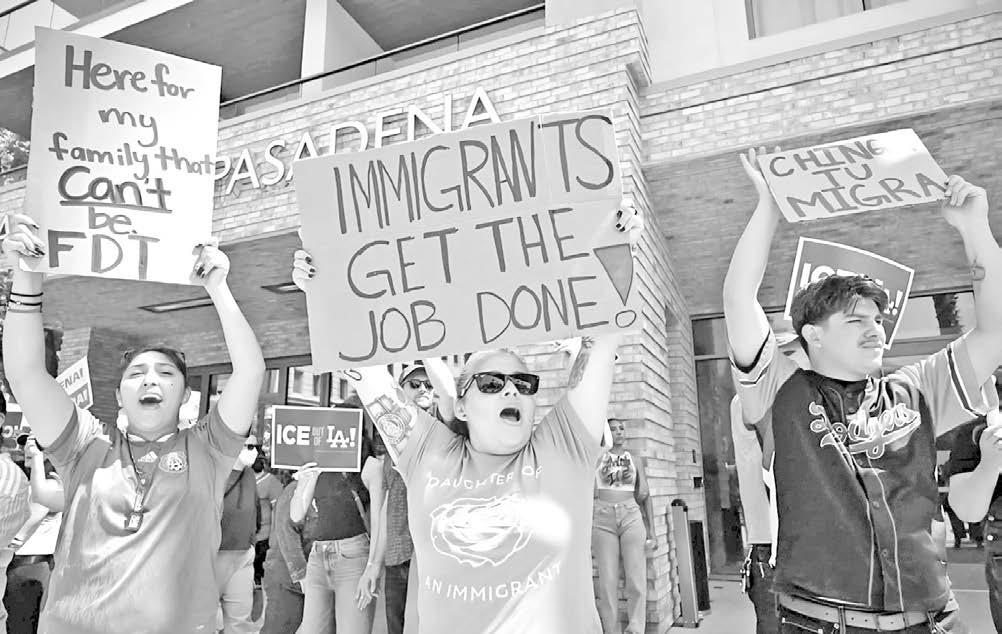 Here for
my
family that
Can't
be.
FDT
PASADENA
IMMIGRANTS
GET THE
JOB DONE!
CHING
TU
MIGRA
ICE
LA!
ICE OUT OF LA!
DAUGHTER OF
AN IMMIGRANT
Dodgers